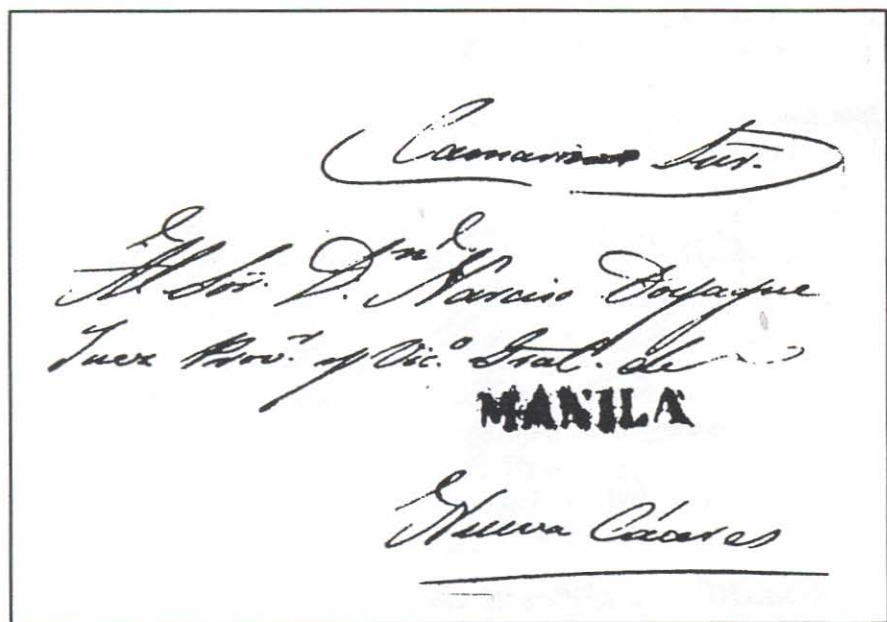 Camarines Sur.
Al Sor. Dn. Narciso Doyaque
Juez Prov.r y Vic.o Gral. de
MANILA
Nueva Cáceres